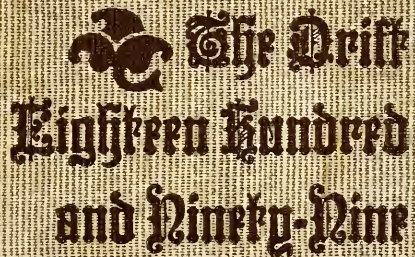 The Drift
Eighteen Hundred
and Ninety-Nine